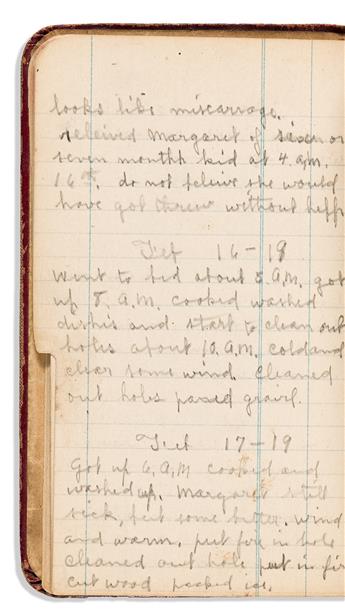 looks like miscarrage.
releived Margaret of sixen or
seven monthh kid at 4 a.m.
16th. do not beleive she would
have got threw without help
Feb 16-19
Went to bed about 5 A.M. got
up 8 A.M. cooked washed
dishis and start to clean out
holes about 10 A.M. cold and
clear some wind cleaned
out holes paned gravel.
Feb 17-19
Got up 6 A.M cooked and
washed up. Margaret still
sick, but some better. wind
and warm. put fire in hole
cleaned out hole put in fir
cut wood packed ice.